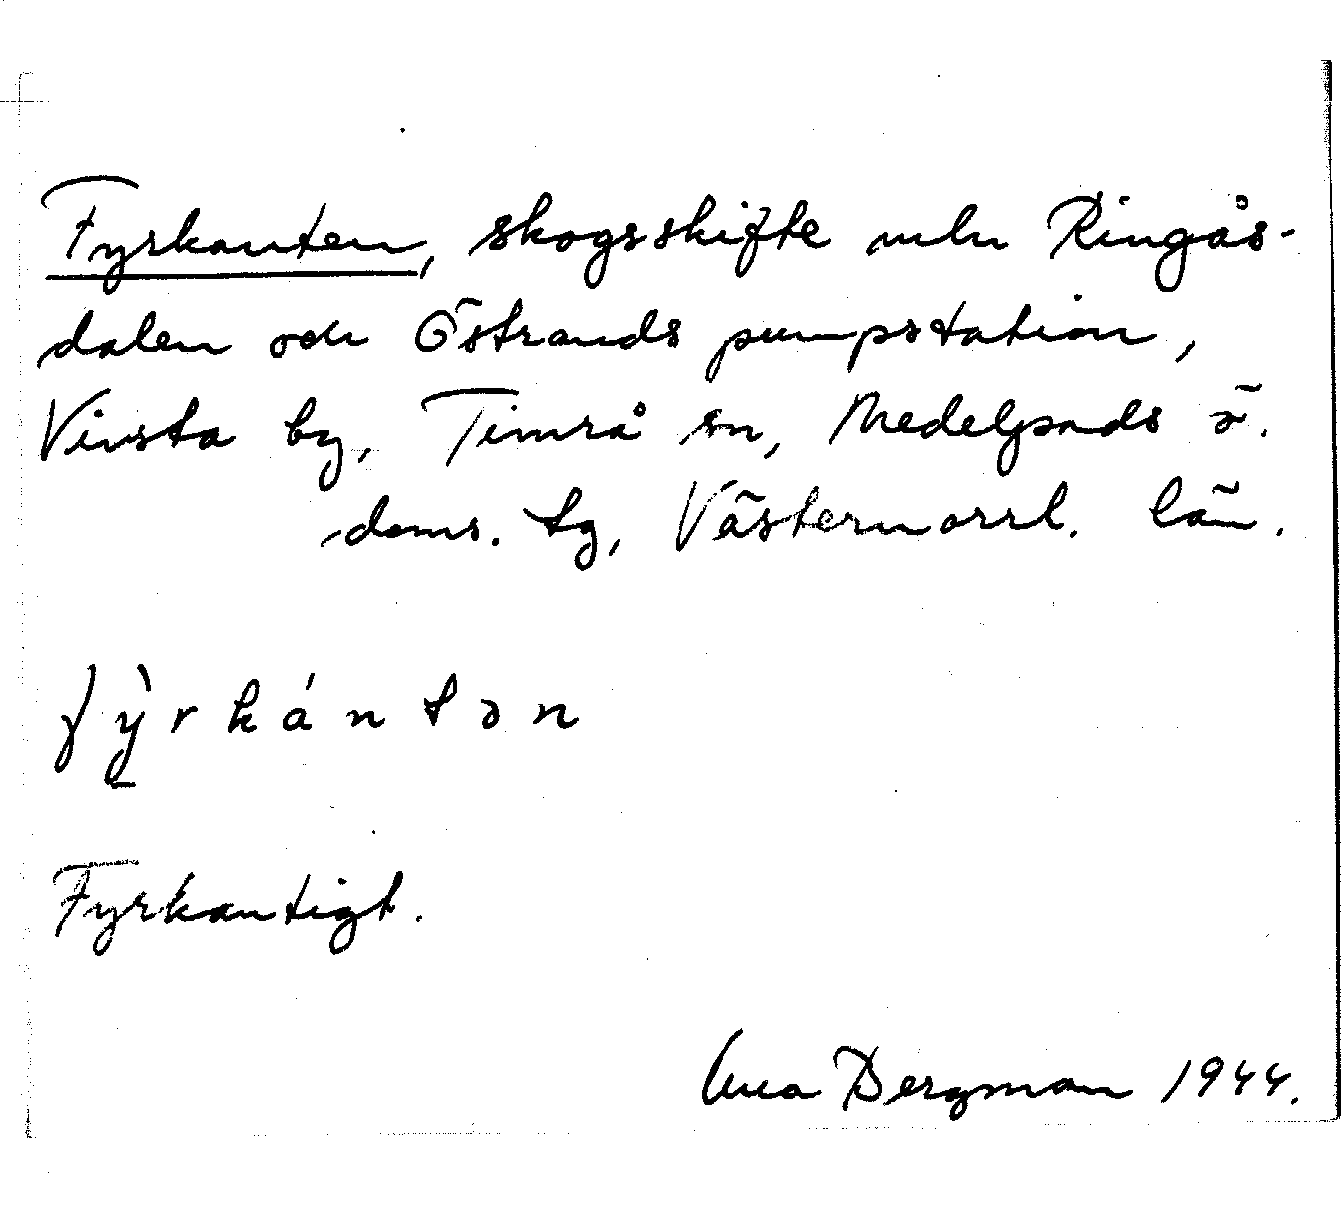 Fyrkanten, skogsskifte mln Ringås-
dalen och Östrands pumpstation,
Vivsta by, Timrå sn, Medelpads ö.
doms. tg, Västernorrl. län.
fỳ̱rkántən
Fyrkantigt.
Anna Bergman 1944.